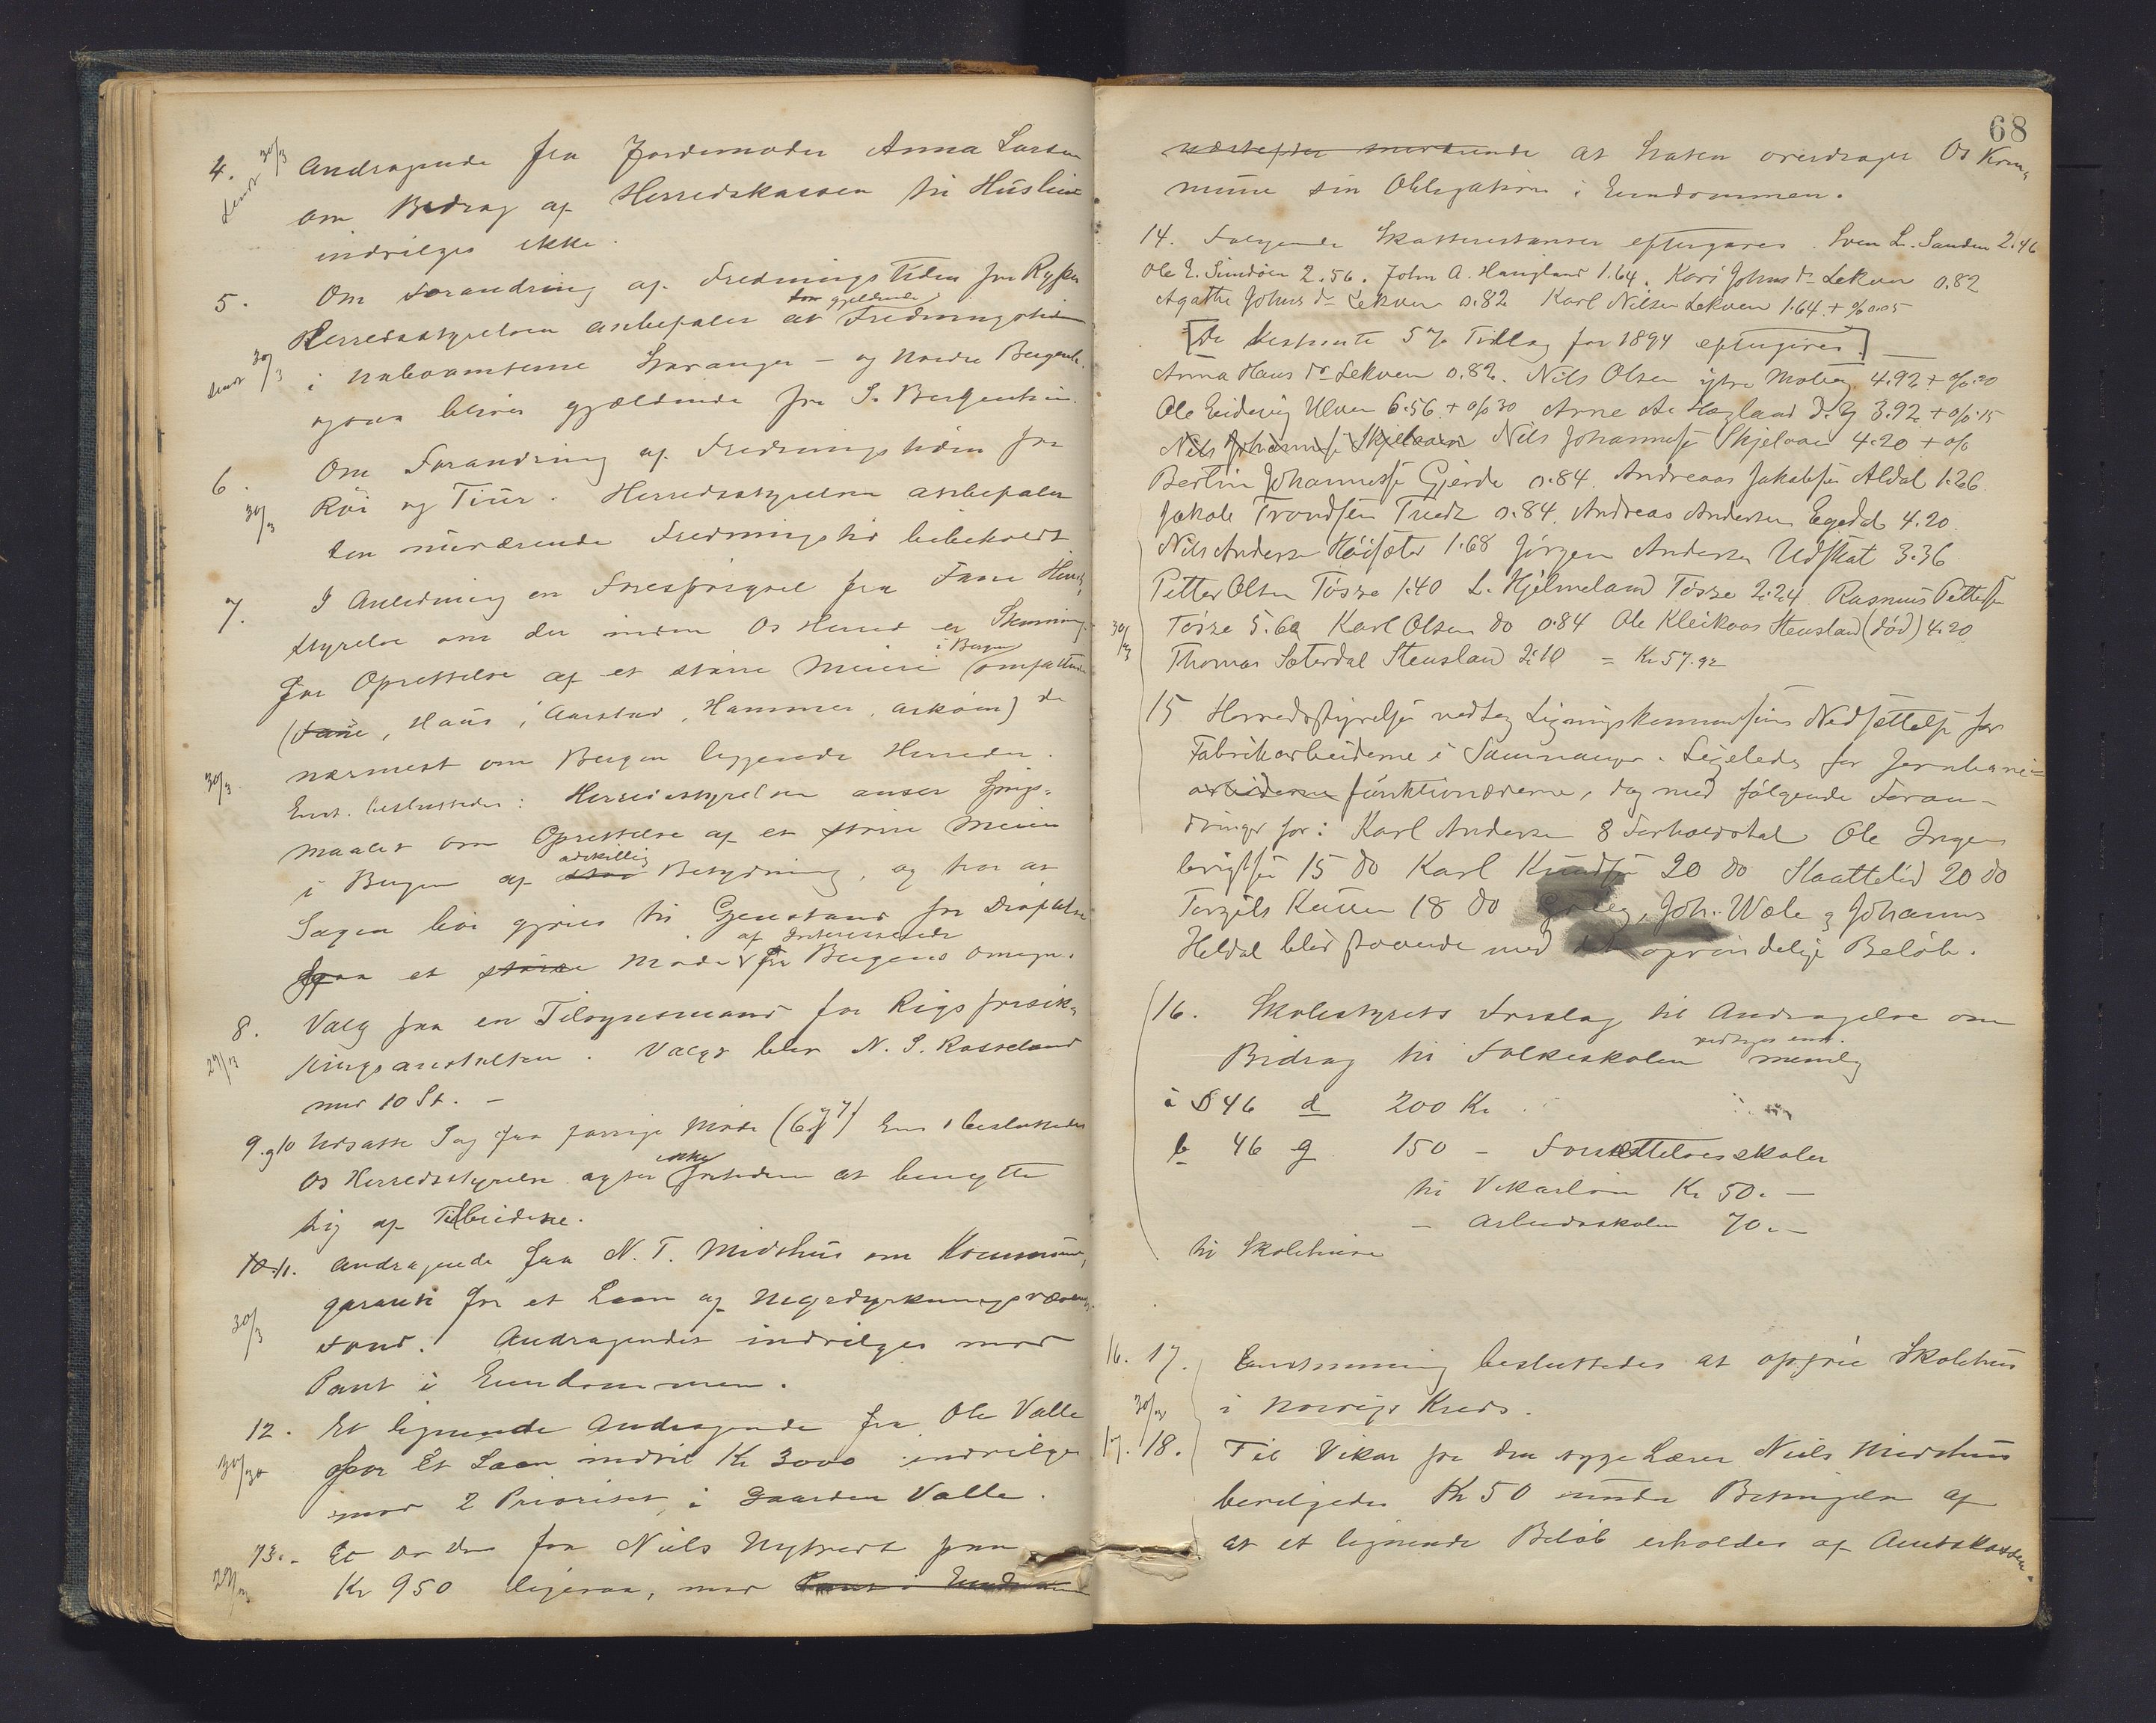 4. Andragende fra Jordemoder Anna Larsen
30/3
Sendt
om Bidrag af Herredskassen til Husleie
indvilges ikke.
5. Om Forandring af Fredningstiden for Ryper
som gjeldende
Herredsstyrelsen anbefaler at Fredningstiden
i naboamterne Stavanger – og Nordre Bergenh.
Sendt 30/3
ogsaa bliver gjældende for S. Bergenhus.
6. Om Forandring af Fredningstiden for
Röi og Tiur. Herredsstyrelsen anbefaler
30/3
den nuværende Fredningstid bibeholdt
7. I Anledning en Forespörgsel fra Fane Herreds-
styrelse om der inden Os Herred er Stemning
i Bergen
for Oprettelse af et större Meieri omfattende
(Fane, Haus, Aarstad, Hammer, Askøen) de
nærmest om Bergen liggende Herreder.
30/3
Enst. besluttedes: Herredsstyrelsen anser Spörgs-
maalet om Oprettelse af et större Meieri
adskillig
i Bergen af stor Betydning, og tror at
Sagen bör gjöres til Gjenstand for Dröftelse
af Interesserede
paa et större Möde fra Bergens Omegn.
8. Valg paa en Tilsynsmand for Rigsforsik-
27/3
ringsanstalten. Valgt blev N. S. Rosseland
med 10 St. –
9.g10 Udsatte Sag fra forrige Möde (6 g 7) Enst. besluttedes
ikke
Os Herredsstyrelse agter fortiden at benytte
sig af Tilbudene.
10.11. Andragende fra N. T. Midthus om Kommune-
garanti for et Laan af Myrdyrkningsvæsenets
30/3
Fond. Andragendet indvilges mod
Pant i Eiendommen.
12. Et lignende Andragende fra Ole Valle
for Et Laan indtil Kr 3000 indvilges
30/3
mod 2 Prioritet i Gaarden Valle.
13. Et do do fra Niels Nytveit paa
27/3
Kr 950 ligesaa, mod Pant i Eiendommen
68
næstefter nuværende at Staten overdrager Os Kom-
mune sin Obligation i Eiendommen.
14. Følgende Skatterestanser eftergaves. Sven L. Sanden 2.46
Ole E. Sundöen 2.56. John A. Haugland 1.64. Kari Johns dr Lekven 0.82
Agathe Johns dr Lekven 0.82 Karl Nilsen Lekven 1.64 + % 0.05
[De bestemte 5% Tillæg for 1894 eftergives]
Anna Hans dr Lekven 0.82. Nils Olsen ytre Moberg 4.92 + % 20
Ole Endevig Ulven 6.56 + % 30 Arne A. Hegland d.y. 3.92 + % 15
Nils Johannesn Skjelvaen Nils Johannessn Skjelvaen 4.20 + %
Bertin Johannessn Gjerde 0.84. Andreas Jakobsen Aldal 1.26.
Jakob Trondsen Tveit 0.84. Andreas Andersen Egedal 4.20.
Nils Andersn Höisæter 1.68 Jörgen Andersen Udskat 3.36
Petter Olsen Tösse 1.40 L. Hjelmeland Tösse 2.24 Rasmus Pettersn
Tösse 5.60 Karl Olsen do 0.84 Ole Kleikaas Stensland (död) 4.20
30/3
Thomas Sæterdal Stensland 2.10 = Kr 57.92
15 Herredsstyrelsen vedtog Ligningskommissionens Nedsættelse for
Fabrikarbeiderne i Samnanger. Ligeledes for Jernbane-
arbeiderne funktionærerne, dog med følgende Foran-
dringer for: Karl Andersen 8 Forholdstal Ole Inge-
brigtsen 15 do Karl Knudsen 20 do Slaattelid 20 do
Torgils Kutten 18 do Grieg, Joh. Wæle g Johannes
Heldal blev staaende med det oprindelige Belöb.
16. Skolestyrets Forslag til Andragelse om
vedtages enst.
Bidrag til Folkeskolen nemlig
à § 46 d 200 Kr
b 46 g 150 – Fortsættelsesskoler
til Vikarlön Kr 50. –
– Arbeidsskolen 70. –
til Skolehuse
16. 17. Enstemmig besluttedes at opföre Skolehus
30/3
i Norvigs Kreds.
17. 18. Til Vikar for den syge Lærer Niels Midthus
bevilgedes Kr 50 under Betingelse af
at et lignende Belöb erholdes af Amtskassen.